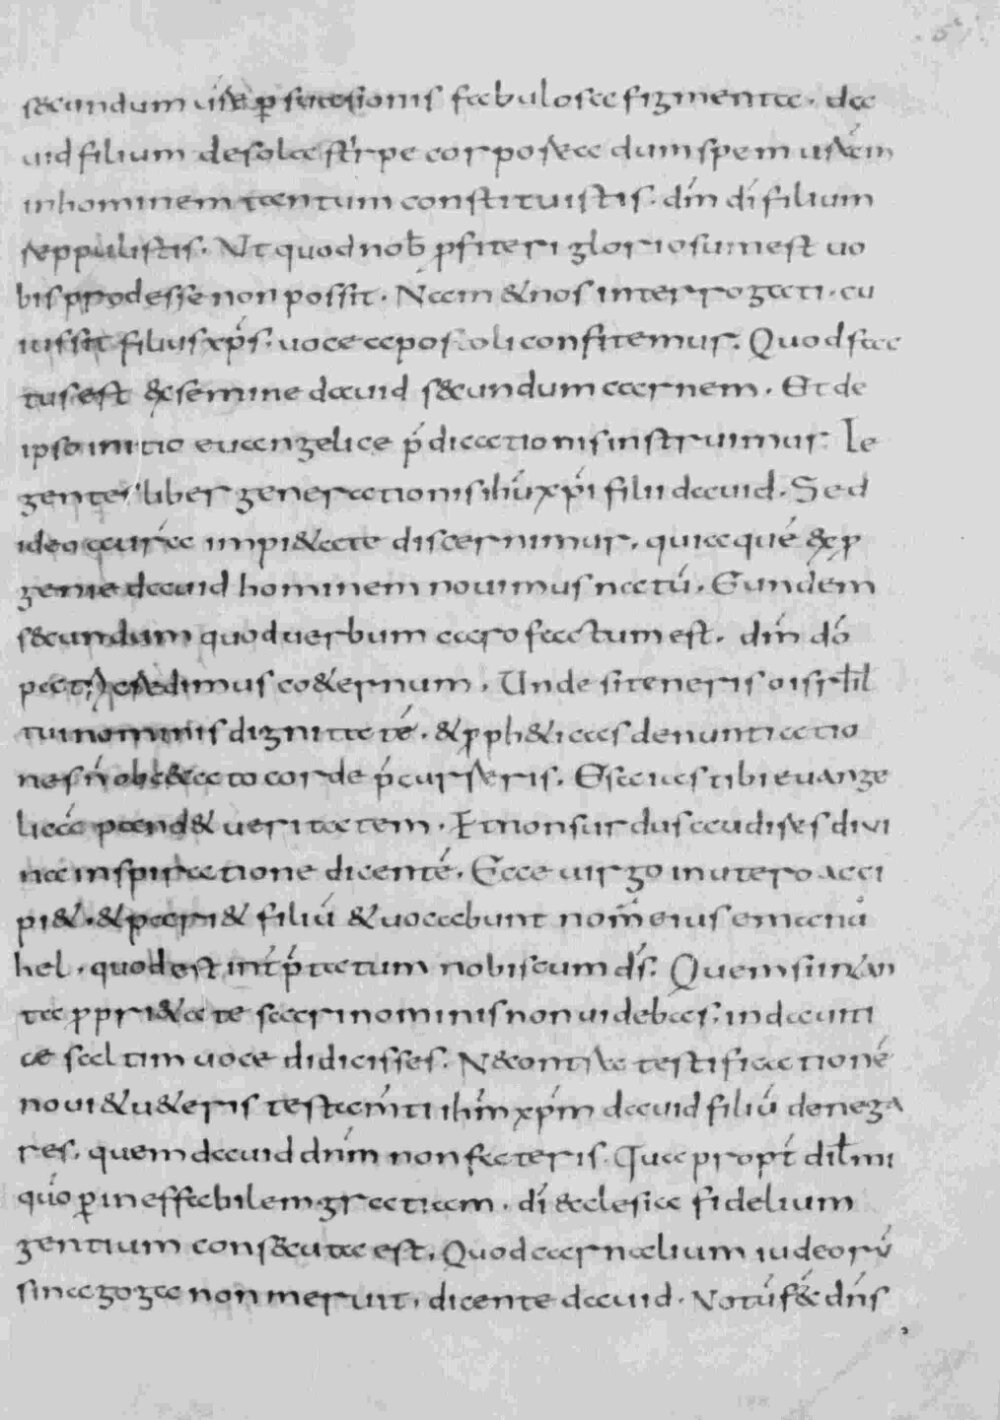 secundum uŕae ꝑsuasionis fabulosa figmenta. da
uid filium de sola stirpe corporea dum spem uŕam
in hominem tantum constituistis. dńm dí filium
reppulistis. Ut quod nob̄ ꝓfiteri gloriosum est uo
bis ꝓdesse non possit. Nam & nos interrogati. cu
ius sit filius xṕs. uoce apostoli confitemur. Quod fac
tus est ex semine dauid secundum carnem. Et de
ipso initio euangelicae ṕdicationis instruimur. Le
gentes liber generationis ihú xṕi filii dauid. Sed
ideo a uŕa impi&ate discernimur, quia qué ex ꝓ
genie dauid hominem nouimus natú. Eundem
secundum quod uerbum caro factum est. dńm dó
patri credimus co&ernum. Unde si teneris o isrl̄
tui nominis dignitaté. & ꝓph&icas denuntiatio
nes ń obcecato corde ṕcurreris. Esaias tibi euange
licá pand& ueritatem. Et non surdus audires divi
na inspiratione dicenté. Ecce uirgo in utero acci
pi&. & pari& filiú & uocabunt nom̄ eius emanu
hel. quod est int́ṕtatum nobiscum dś. Quem si in tan
ta ꝓpri&ate sacri nominis non uidebas. in dauiti
ca saltim uoce didicisses. Ne contra testificationé
noui & u&eris testam̄ti ihm̄ xṕm dauid filiú denega
res. quem dauid dnm̄ non fateris. Qua propt́ dil̄mi
quó ꝑ ineffabilem gratiam. dí ecclesia fidelium
gentium consecuta est. Quod carnalium iudeorú
sinagoga non meruit. dicente dauid. Notú fec dńs